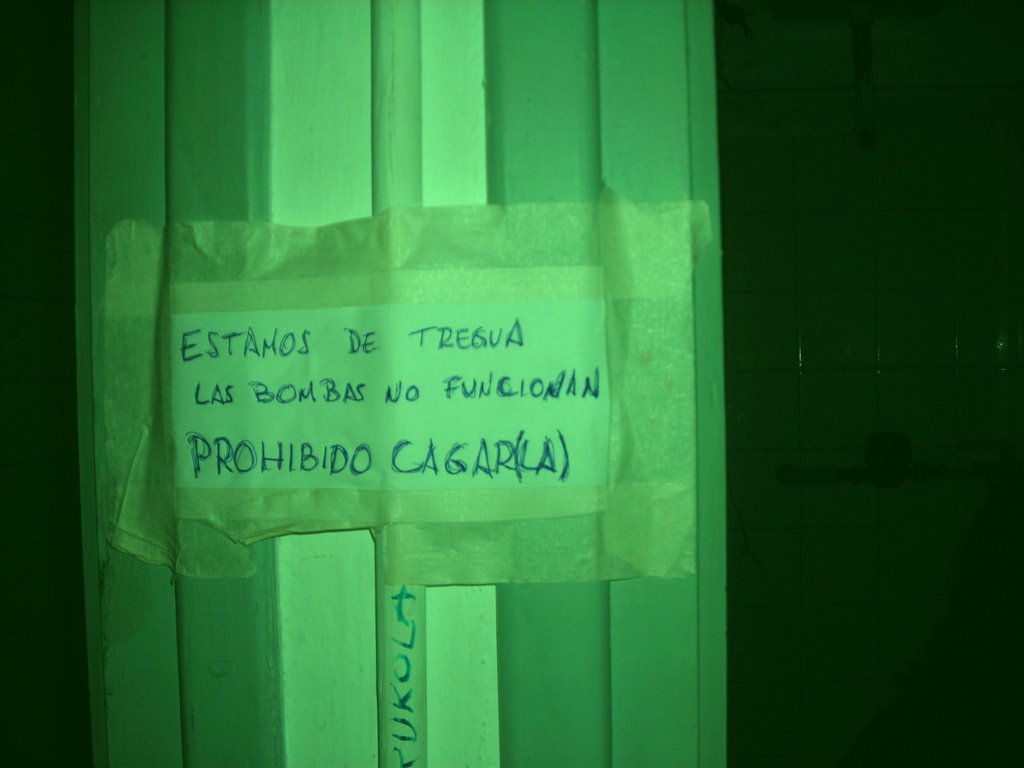 ESTAMOS DE TREGUA
LAS BOMBAS NO FUNCIONAN
PROHIBIDO CAGAR(LA)